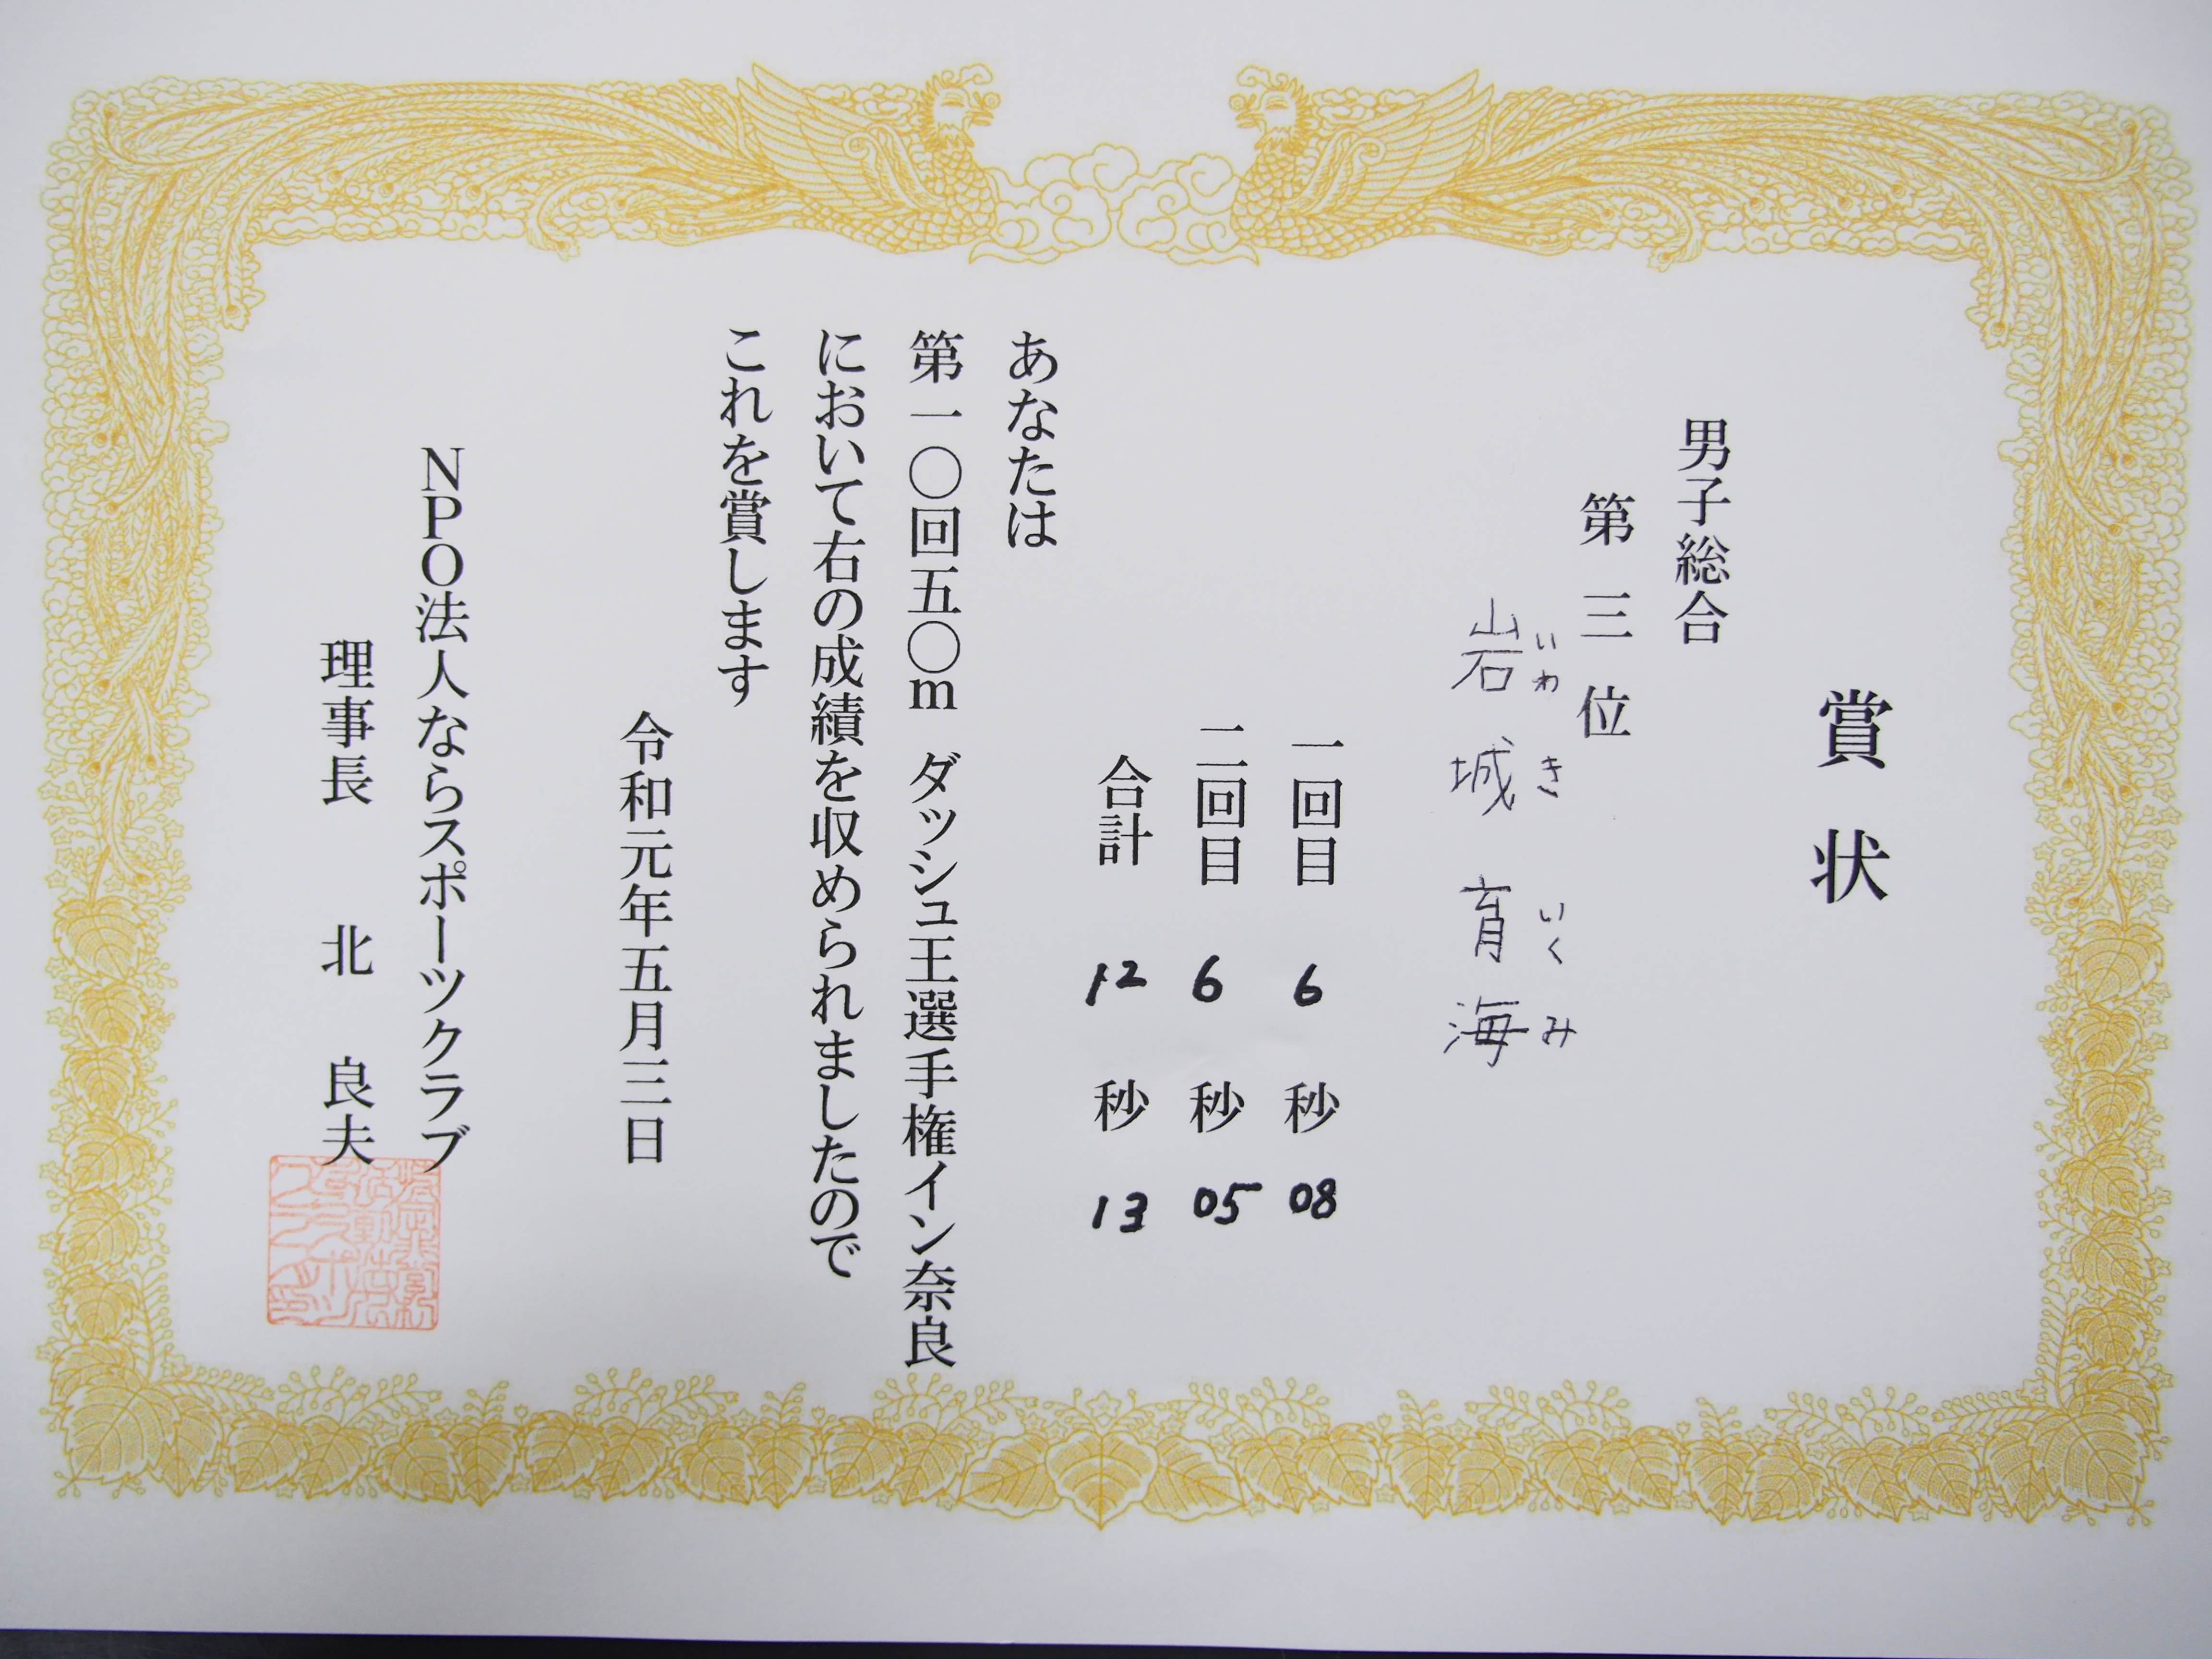 賞状
男子総合
第三位
いわき いくみ
岩城 育海
一回目 6 秒 08
二回目 6 秒 05
合計 12 秒 13
あなたは
第一〇回五〇m ダッシュ王選手権イン奈良
において右の成績を収められましたので
これを賞します
令和元年五月三日
NPO法人ならスポーツクラブ
理事長 北 良夫